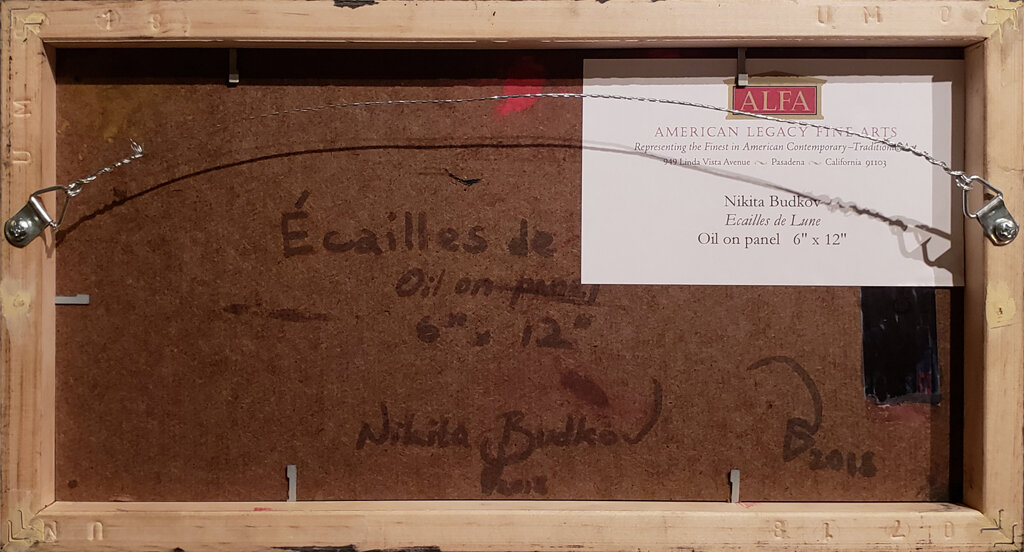 ALFA
AMERICAN LEGACY FINE ARTS
Representing the Finest in American Contemporary-Traditional Art
949 Linda Vista Avenue ~ Pasadena ~ California 91103
Nikita Budkov
Ecailles de Lune
Oil on panel 6" x 12"
Écailles de
Oil on panel
6" x 12"
Nikita Budkov
2018
B 2018